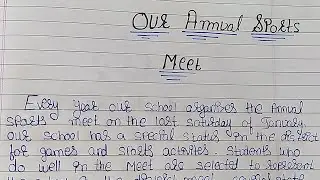 Our Annual Sports
Meet
Every year our school organises the Annual
sports meet on the last saturday of January.
our school has a special status in the district
for games and sports activities. Students who
do well in the Meet are selected to represent